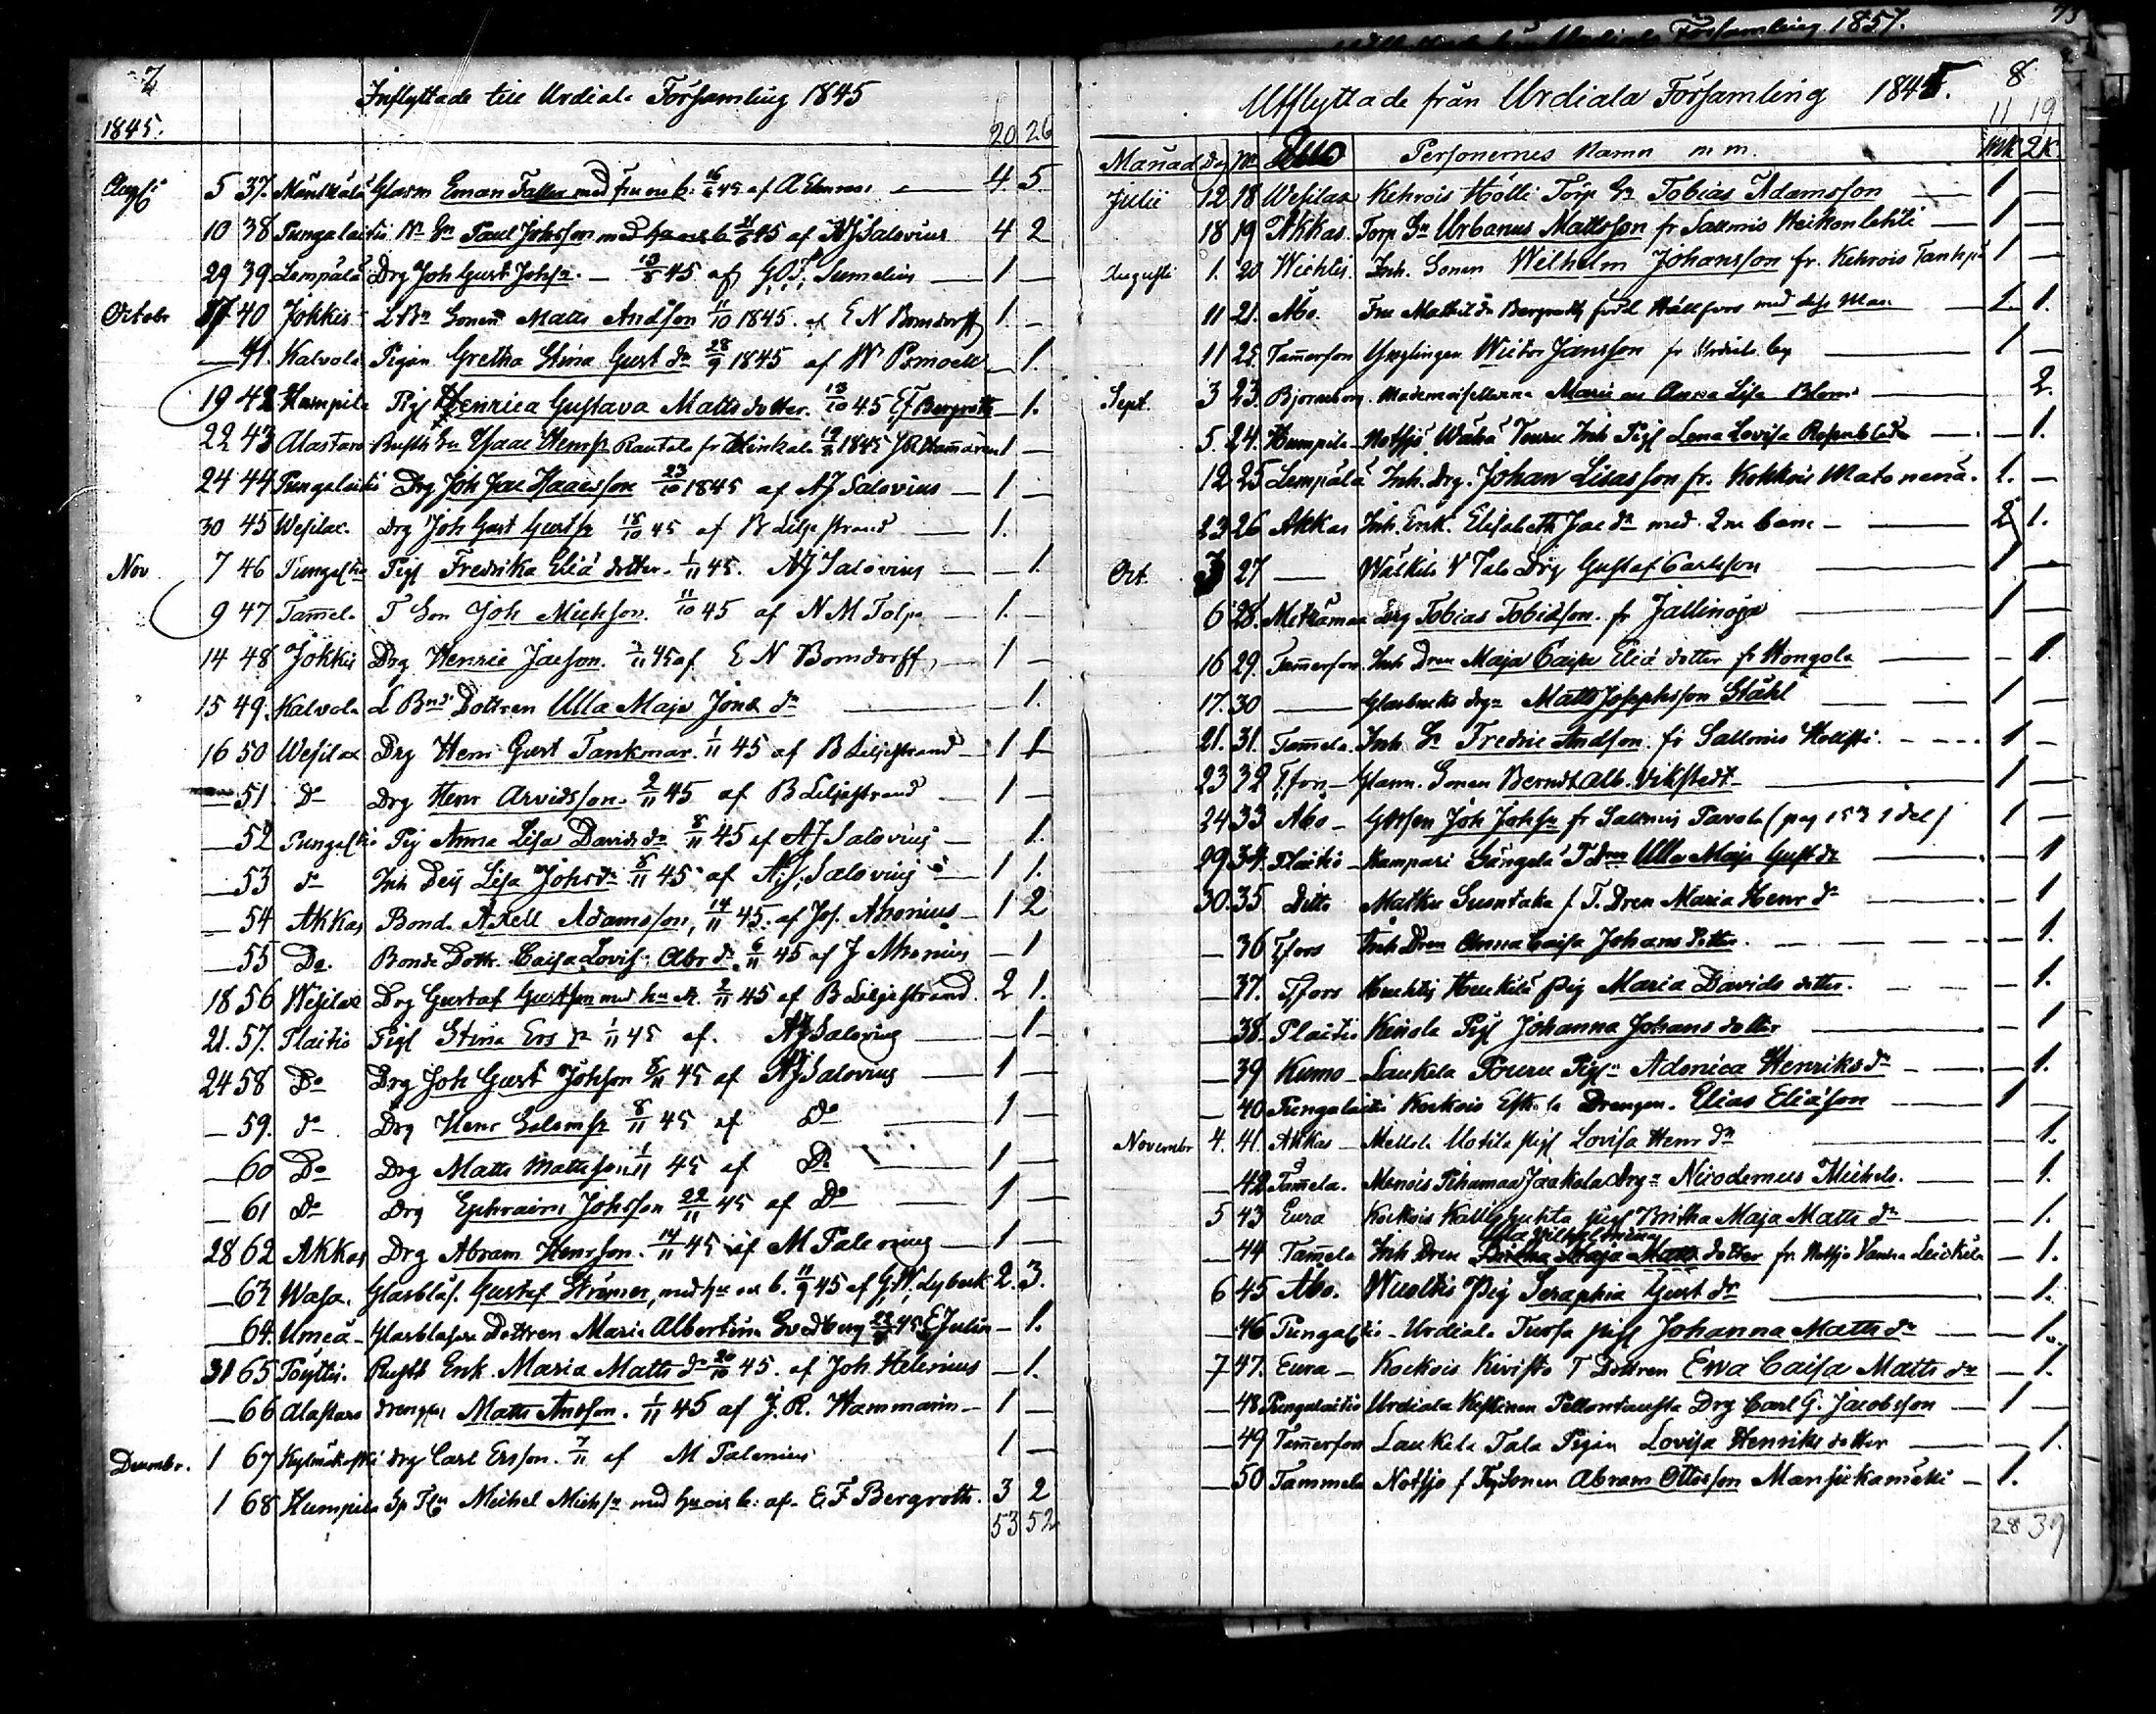 7
Inflyttade till Urdiala Församling 1845
1845.
20 26
Aug 5 37. Mäntsälä Glasm Eman Faller med fru en b. 16/6 45 af A 4 5
10 38 Pungalaitio Paul Johsson med hu 45 af AJ Salovius 4 2
29 39 Lempälä Drg Joh Gust Johsn. — 13/8 45 af G.O.F. Sumelius 1 —
Octobr 17 40 Jokkis Sonen Matts Andson 11/10 1845. af E N Bomdorff 1. —
— 41. Kalvola Pigan Gretha Stina Gust dr 28/9 1845 af W — 1.
19 42 Humpila Pig Henrica Gustava Matts dotter. 13/10 45 E F Bergroth — 1.
22 43 Alastaro Isaac Hemsn Rautala fr 1845 J R Hammarén 1 —
24 44 Pungalaitio Drg Joh Jac Isaacsson 23/10 1845 af AJ Salovius 1 —
30 45 Wesilax. Drg Joh Gust Gustsn 18/10 45 af B Liljestrand 1.
Nov 7 46 Pungaltio Pig Fredrika Eliä dotter. 1/11 45. AJ Salovius — 1.
9 47 Tamela T Son Joh Michson. 11/10 45 af N M Tolpo 1. —
14 48 Jokkis Drg Henric Jacson. 2/11 45 af E N Bomdorff 1 —
15 49. Kalvola L Bnds Dottren Ulla Maja Jonæ dr — 1.
16 50 Wesilax Drg Henr Gust Tankmar. 1/11 45 af B Liljestrand 1 1
— 51. Do Drg Henr Arvidsson. 2/11 45 af B Liljestrand 1 —
— 52 Pungaltio Pig Anna Lisa Davids dr 8/11 45 af AJ Salovius — 1.
— 53 do Inh Lisa Johs dr 8/11 45 af A.J. Salovius 1 1.
— 54 Akkas Bond. Axell Adamsson, 14/11 45. af Jos. Ahonius 1 2
— 55 Do. Bonde Dottr. Caisa Lovisa Abr dr 6/11 45 af J Ahonius — 1
18 56 Wesilax Drg Gustaf Gustson med hu 2/11 45 af B Liljestrand. 2 1.
21. 57. Plaitio Pig Stina Ers dr 1/11 45 af. AJ Salovius — 1
24 58 Do Drg Joh Gust Johson 8/11 45 af AJ Salovius 1 —
— 59. do Drg Henr Salomsn 8/11 45 af Do 1 —
— 60 Do Drg Matts Mattsson 1/11 45 af Do 1 —
— 61 do Drg Ephraim Johsson 22/11 45 af Do 1 —
28 62 Akkas Drg Abram Henrson. 14/11 45 af M Palenius 1 —
— 63 Wasa. Glasblås. Gustaf Strömer, med hu oa b. 11/9 45 af G.W. Lybeck 2. 3.
— 64. Umeå Glasblasare Dottren Maria Albertina Svedberg 45 E Julin — 1.
31 65 Pöyttis. Enk. Maria Matts dr 20/10 45. af Joh. Helenius — 1.
— 66 Alastaro drengen Matts Andson. 1/11 45 af J. R. Hammarén 1 —
Decembr. 1 67 Kylmäkoski drg Carl Ersson. 7/11 af M Palenius 1 —
1 68 Humpila Michel Michsn med hu ois b: af E F Bergroth. 3 2
53 52
Församling 1857.
73
Utflyttade från Urdiala Församling 1845.
8
11 19
Månad Dag No Personernes Namn m m. Mk 2k
Julii 12 18 Wesilax Kehrois Hölli Torp Sn Tobias Adamsson 1 —
18 19 Akkas. Torp Sn Urbanus Mattsson fr Salmis Keikonlehti 1 —
Augusti 1. 20 Wichtis. Inh. Sonen Wilhelm Johansson fr. Kehrois 1 —
11 21. Åbo. Fru Mathilda Bergroth född Hällfors med dess Man 1. 1.
11 22. Tamerfors Ynglingen Wictor Jansson fr Urdiala by 1 —
Sept. 3 23. Björneborg. Mademoisellerna Marie och Anna Lisa Blom 2.
5. 24. Humpila Notsjö Inh Pig Lena Lovisa Rosenblad — 1.
12 25 Lempälä Inh. Drg. Johan Lisasson fr. Kokkois Matomenä. 1. —
23 26 Akkas Inh. Enk. Elisabeth Jac dr med 2ne barn 2 1.
Oct. 3 27 — Wälkilä Y Talo Drg Gustaf Carlsson 1 —
6 28. Metsämaa drg Tobias Tobiasson. fr Jallinoja 1 —
16 29. Tamerfors Inh Dren Maja Caisa Eliä dotter fr Hongola — 1.
17. 30 — Glasbruks drgn Matts Josephsson Ståhl 1 —
21. 31. Tamela Inh Sn Fredric Andson. fr Salmis 1 —
23 32 T.fors Glasm. Sonen Berndt Alb. Vikstedt 1 —
24 33 Åbo Gossen Joh Johsn fr Salmis Pavola (pag 153 1 del) 1 —
29 34. Plaitio Kampari Sängelä T dren Ulla Maja Gust dr — 1
30. 35 Ditto Matku f. T. Dren Maria Henr dr — 1
— 36 Tfors Inh Dren Anna Caisa Johans Dotter. — 1.
— 37. Tfors Huhtis Heikilä pig Maria Davids dotter. — 1.
— 38. Plaitio Keinola Pig Johanna Johans dotter — 1
— 39 Kumo Laukela Pouru Pign Adonica Henriks dr — 1.
— 40 Pungalaitio Kockois Drengen. Elias Eliäson 1 —
Novembr 4. 41. Akkas Mellola Uotila pig Lovisa Henr dr — 1.
— 42 Tamela. Menois Pihamaa Jaakola drgn Nicodemus Michels. — 1.
5 43 Eura Kockois pig Britha Maja Matts dr — 1.
Ulla Vilhelmina
— 44 Tamela Inh Dren Britha Maja Matts dotter fr. Notsjö Vanha — 1.
6 45 Åbo. Wuoltis Pig Seraphia Gust dr — 1.
— 46 Pungaltio Urdiala Tursa pig Johanna Matts dr — 1.
7 47. Eura Kockois Kivisto T Dottren Ewa Caisa Matts dr — 1.
— 48 Pungalaitio Urdiala Keskinen Pellontausta Drg Carl G. Jacobsson 1 —
— 49 Tamerfors Laukela Tala Pigan Lovisa Henriks dotter — 1.
— 50 Tammela Notsjö f Sonen Abram Ottosson Mansikamäki 1.
28 39